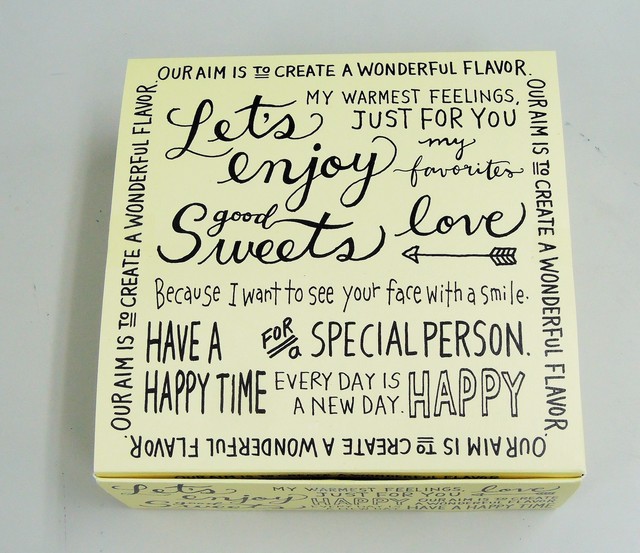 OUR AIM IS TO CREATE A WONDERFUL FLAVOR.
OUR AIM IS TO CREATE A WONDERFUL FLAVOR.
OUR AIM IS TO CREATE A WONDERFUL FLAVOR.
OUR AIM IS TO CREATE A WONDERFUL FLAVOR.
MY WARMEST FEELINGS,
Let's JUST FOR YOU
enjoy my favorites
good love
Sweets
Because I want to see your face with a smile.
HAVE A FOR a SPECIAL PERSON.
HAPPY TIME EVERY DAY IS A NEW DAY. HAPPY
Let's MY WARMEST FEELINGS, love
enjoy JUST FOR YOU
HAPPY OUR AIM IS TO CREATE
HAVE A HAPPY TIME